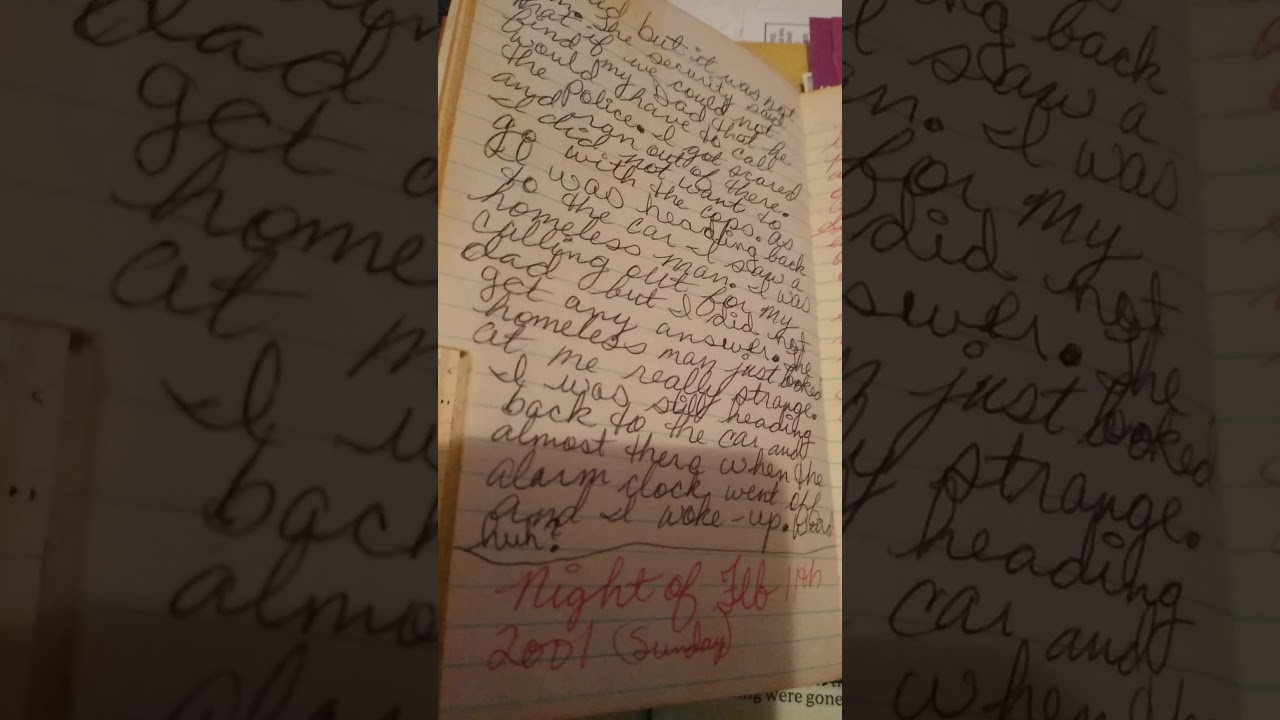 said but it was not
him. The security said
that if we could not
find my dad that he
would have to call
the Police. I got scared
and ran out of there.
I did not want to
go with the cops. as
I was heading back
to the car I saw a
homeless man. I was
calling out for my
dad but I did not
get any answer. The
homeless man just looked
at me really strange.
I was still heading
back to the car and
almost there when the
alarm clock went off
and I woke-up. Weird
huh?
Night of Feb 11th
2001 (Sunday)
ng were gone